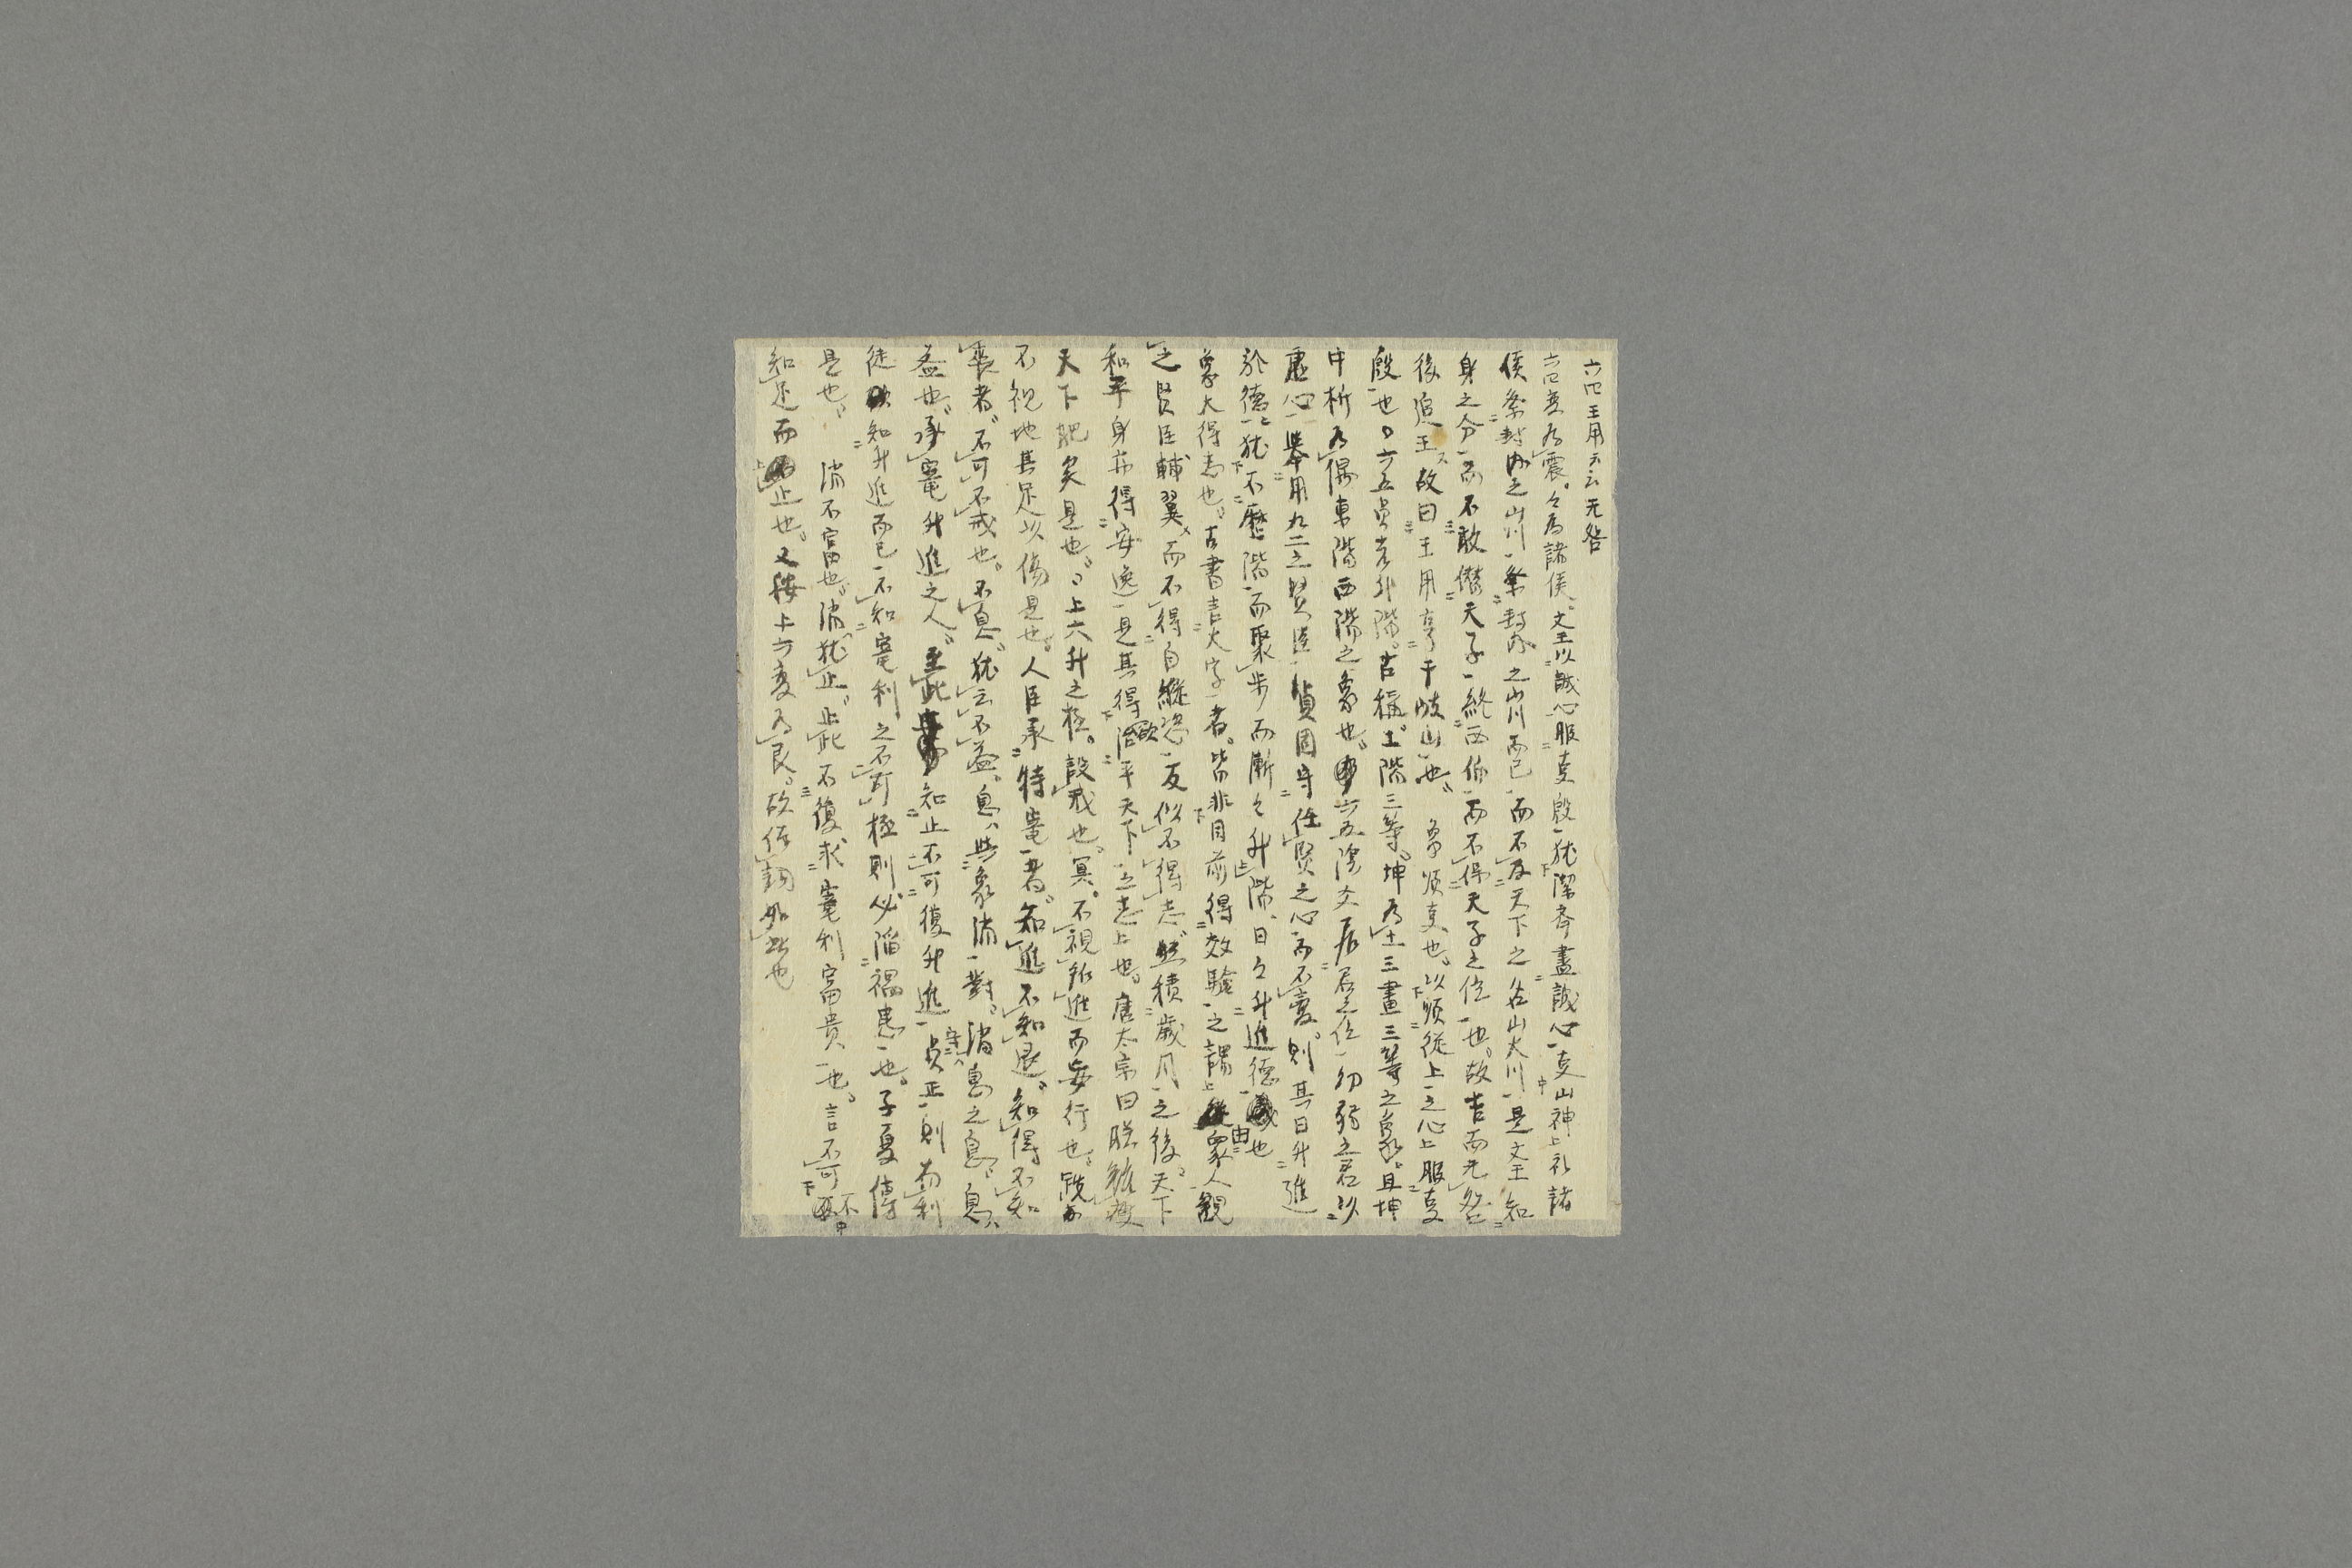 六四王用云云无咎
六四変為震。々為諸侯。文王以誠心服事殷。猶潔斉盡誠心事山神上礼諸
侯祭封内之山川。祭封内之山川而已。而不及天下之名山大川。是文王知
身之分。而不敢僭天子。終西伯。而不得天子之位也。故吉而无咎
後追王。故曰王用亨于岐山也。 象順事也。以順従上之心上服事
殷也。〇六五貞吉升階。古稱。土階三等。坤為土三畫三等之象。且坤
中析為偶東階西階之象也。六五陰爻居君之位。幼弱之君以
虚心。挙用九二之賢臣。貞固守任賢之心而不変。則其日升進
於德。猶不歴階而聚歩而漸々升階、日々升進德也
象大得志也。古書言大字者。皆非目前得效驗之謂上由衆人観
之賢臣輔翼。而不得自縦恣。反似不得志。然積歳月之後。天下
和平身亦得安逸。是其得欲治平天下之志上也。唐太宗曰朕雖痩
天下肥矣是也。〇上六升之極。設戒也。冥。不視所進而妄行也。跣弗
不視地其足以傷是也。人臣承特寵者。知進不知退。知得不知
喪者。不可不戒也。不息。猶云不益。息、與象消対。消息之息。息、
益也。承寵升進之人。至此知止不可復升進。守貞正則有利
徒知升進而已。不知寵利之不可極則必陥禍患也。子夏傳
是也。 消不富也。消猶止。止此不復求寵利富貴也。言不可不
知足而止也。又按上六変為艮。故作詞如此也